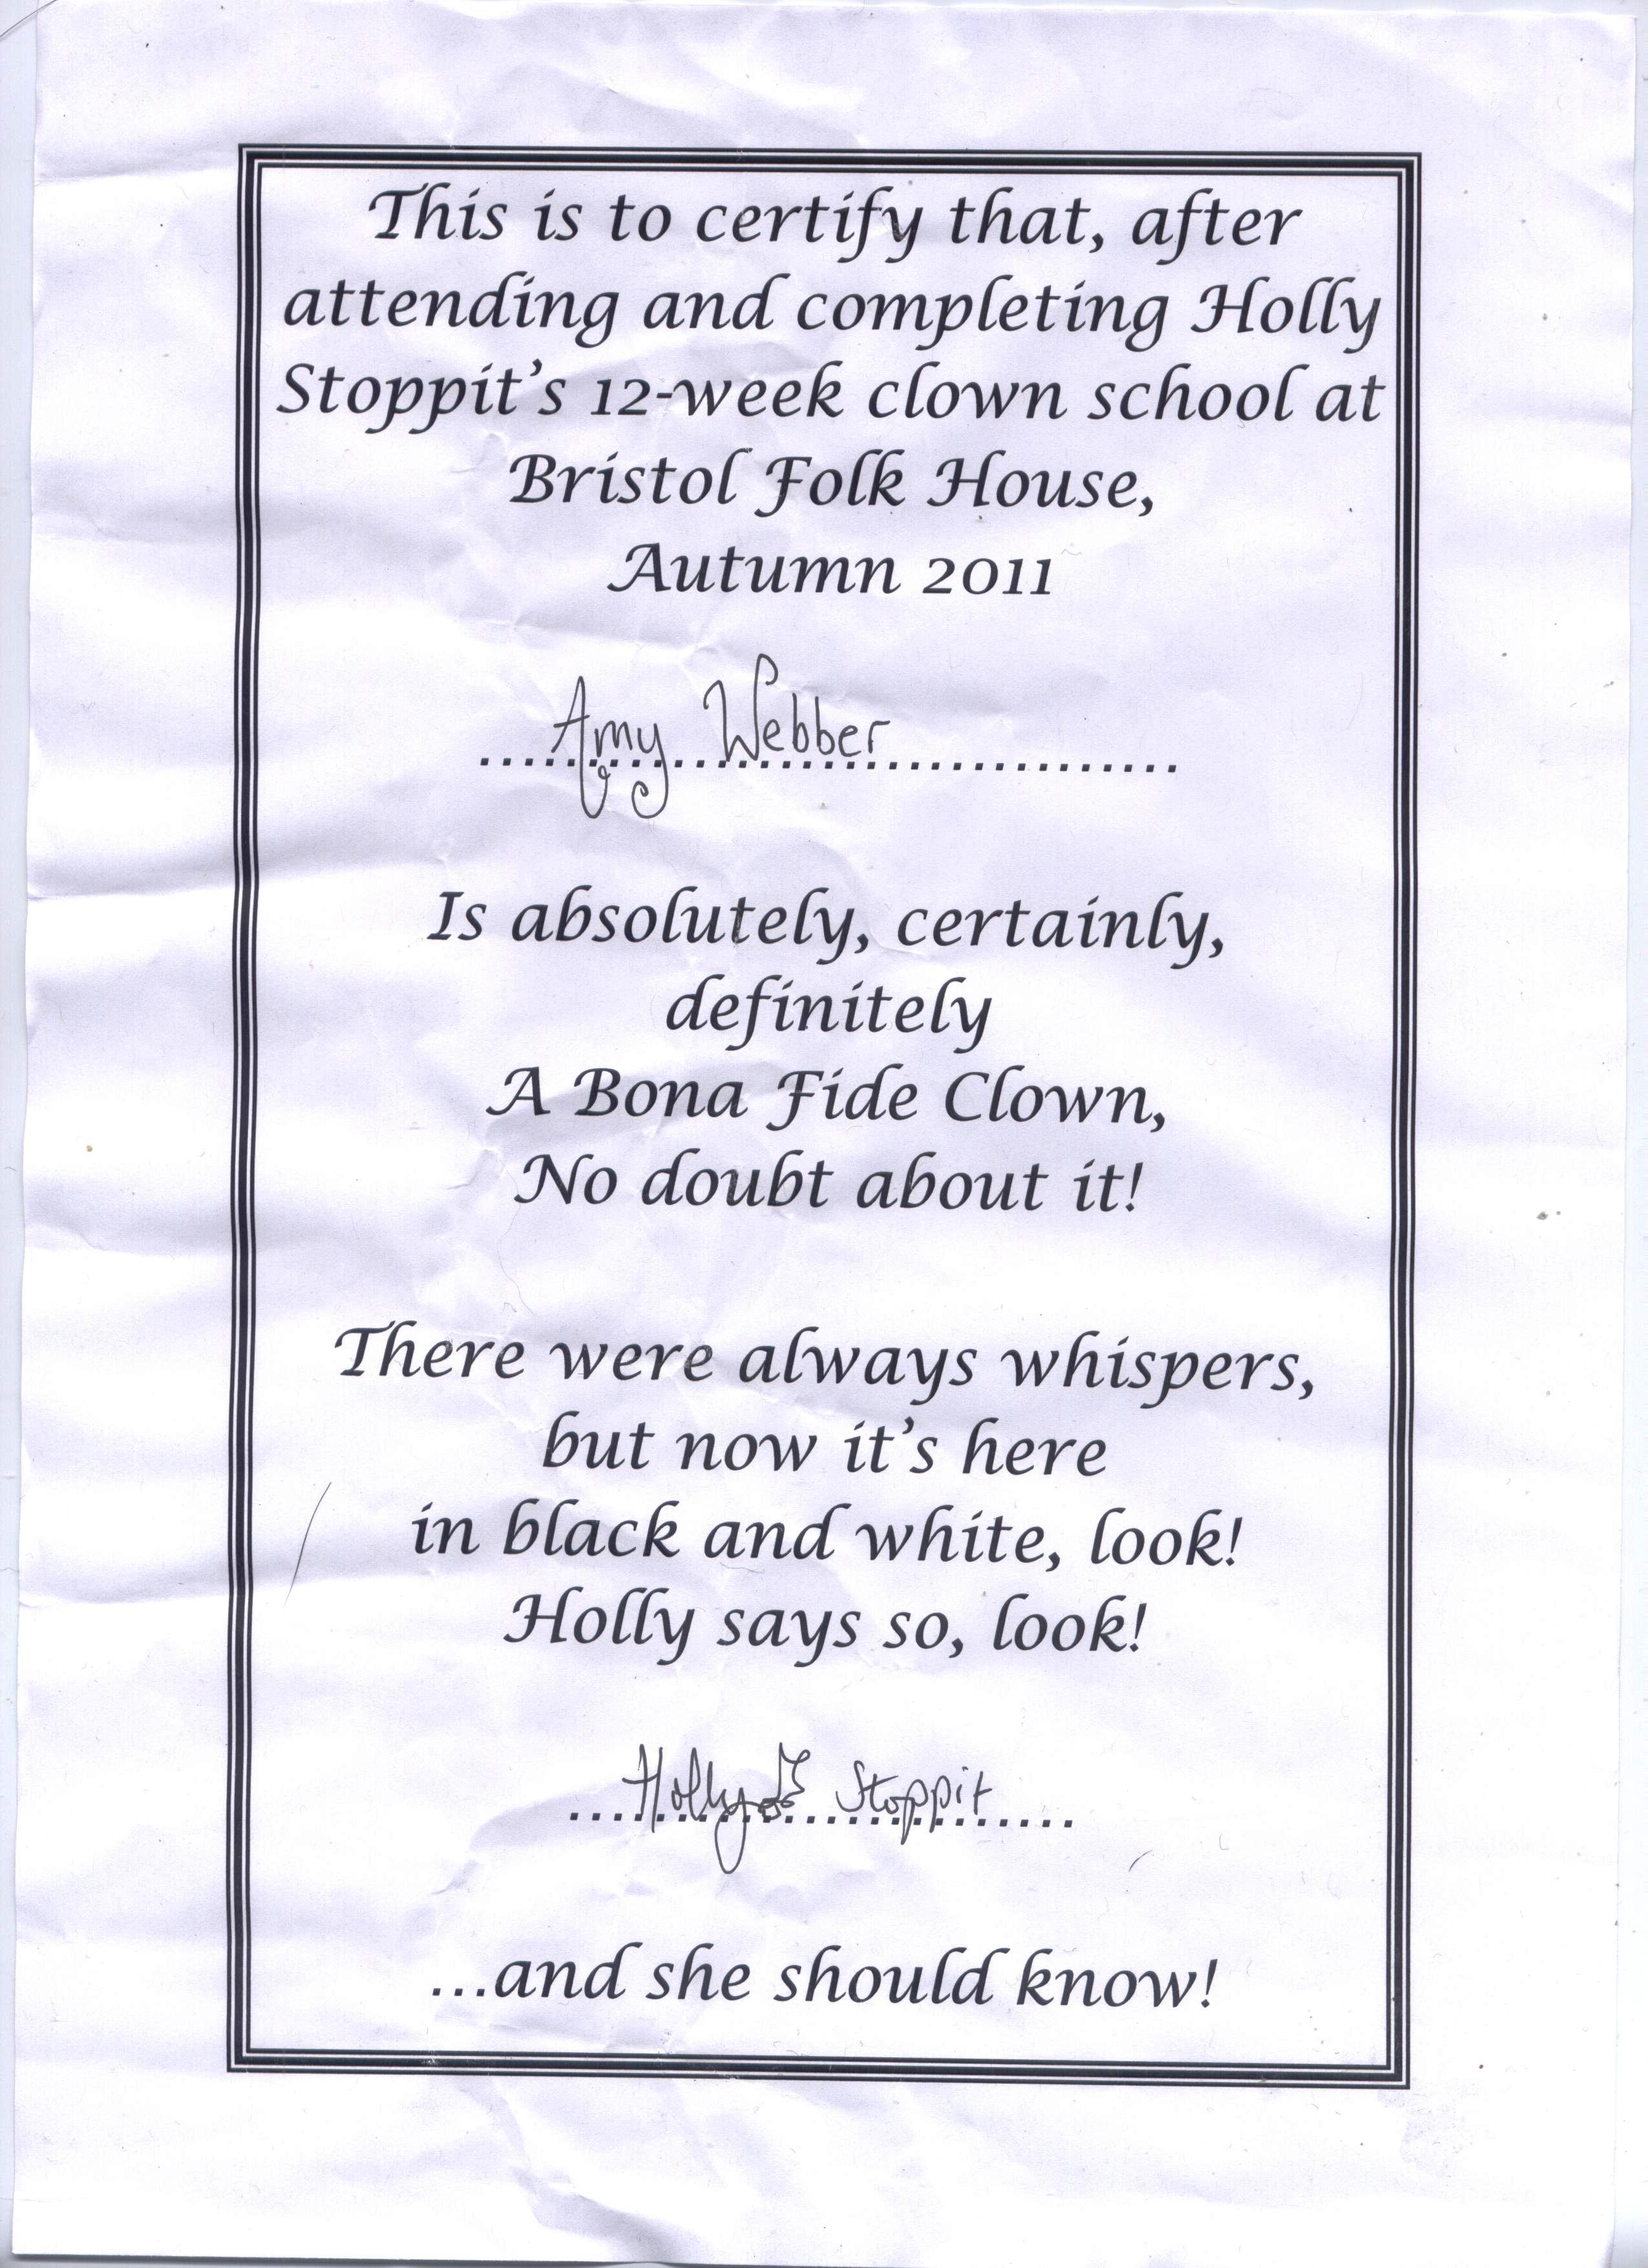 This is to certify that, after
attending and completing Holly
Stoppit's 12-week clown school at
Bristol Folk House,
Autumn 2011
Amy Webber
Is absolutely, certainly,
definitely
A Bona Fide Clown,
No doubt about it!
There were always whispers,
but now it's here
in black and white, look!
Holly says so, look!
Holly Stoppit
...and she should know!